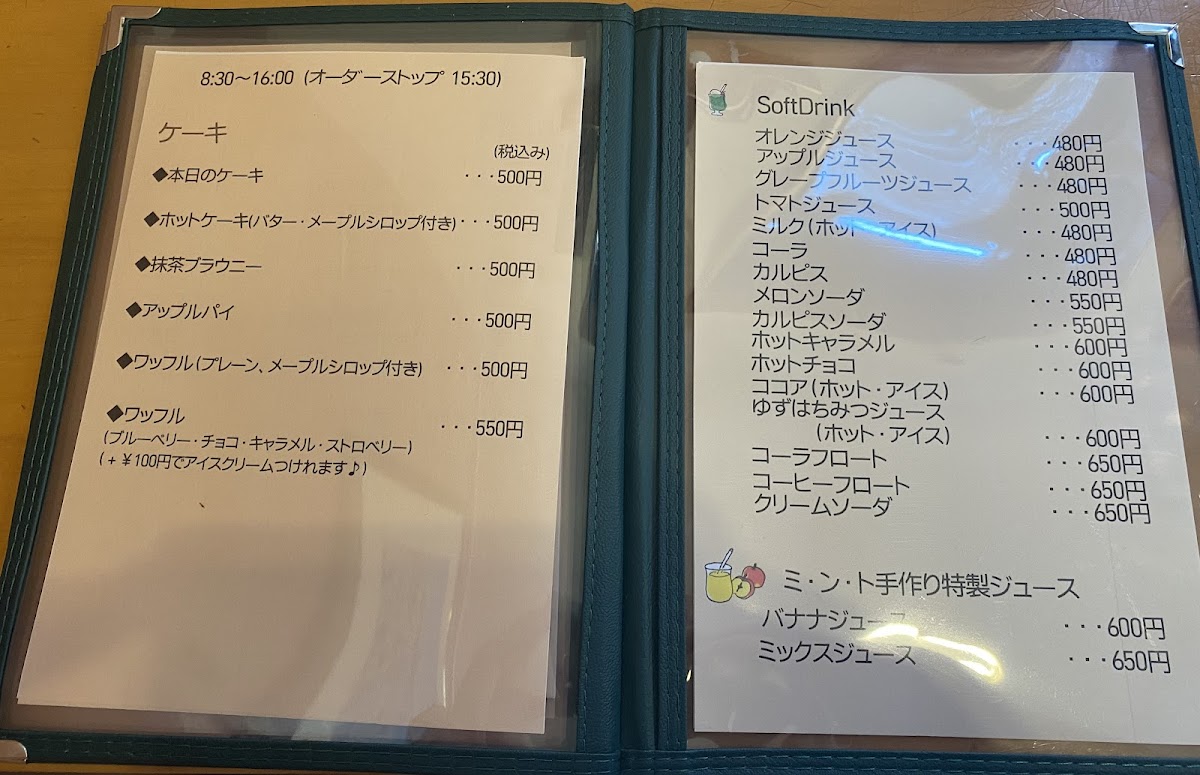 8:30～16:00 (オーダーストップ 15:30)
ケーキ
(税込み)
◆本日のケーキ ・・・500円
◆ホットケーキ(バター・メープルシロップ付き)・・・500円
◆抹茶ブラウニー ・・・500円
◆アップルパイ ・・・500円
◆ワッフル(プレーン、メープルシロップ付き) ・・・500円
◆ワッフル ・・・550円
(ブルーベリー・チョコ・キャラメル・ストロベリー)
(+¥100円でアイスクリームつけれます♪)
SoftDrink
オレンジジュース ・・・480円
アップルジュース ・・・480円
グレープフルーツジュース ・・・480円
トマトジュース ・・・500円
ミルク(ホット・アイス) ・・・480円
コーラ ・・・480円
カルピス ・・・480円
メロンソーダ ・・・550円
カルピスソーダ ・・・550円
ホットキャラメル ・・・600円
ホットチョコ ・・・600円
ココア(ホット・アイス) ・・・600円
ゆずはちみつジュース
(ホット・アイス) ・・・600円
コーラフロート ・・・650円
コーヒーフロート ・・・650円
クリームソーダ ・・・650円
ミ・ン・ト手作り特製ジュース
バナナジュース ・・・600円
ミックスジュース ・・・650円